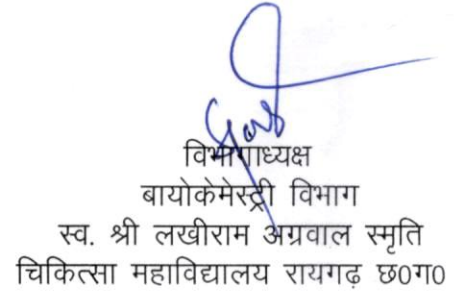 विभागाध्यक्ष
बायोकेमेस्ट्री विभाग
स्व. श्री लखीराम अग्रवाल स्मृति
चिकित्सा महाविद्यालय रायगढ़ छ0ग0